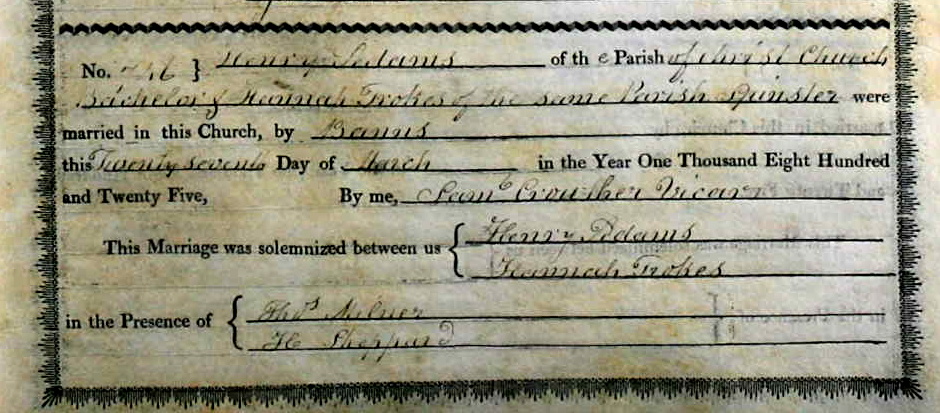 No. 746 } Henry Adams of the Parish of Christ Church
Bachelor & Hannah Trokes of the same Parish Spinster were
married in this Church, by Banns
this Twenty seventh Day of March in the Year One Thousand Eight Hundred
and Twenty Five, By me, Saml Crowther Vicar
This Marriage was solemnized between us { Henry Adams
Hannah Trokes
in the Presence of { Thos Milner
H Sheppard